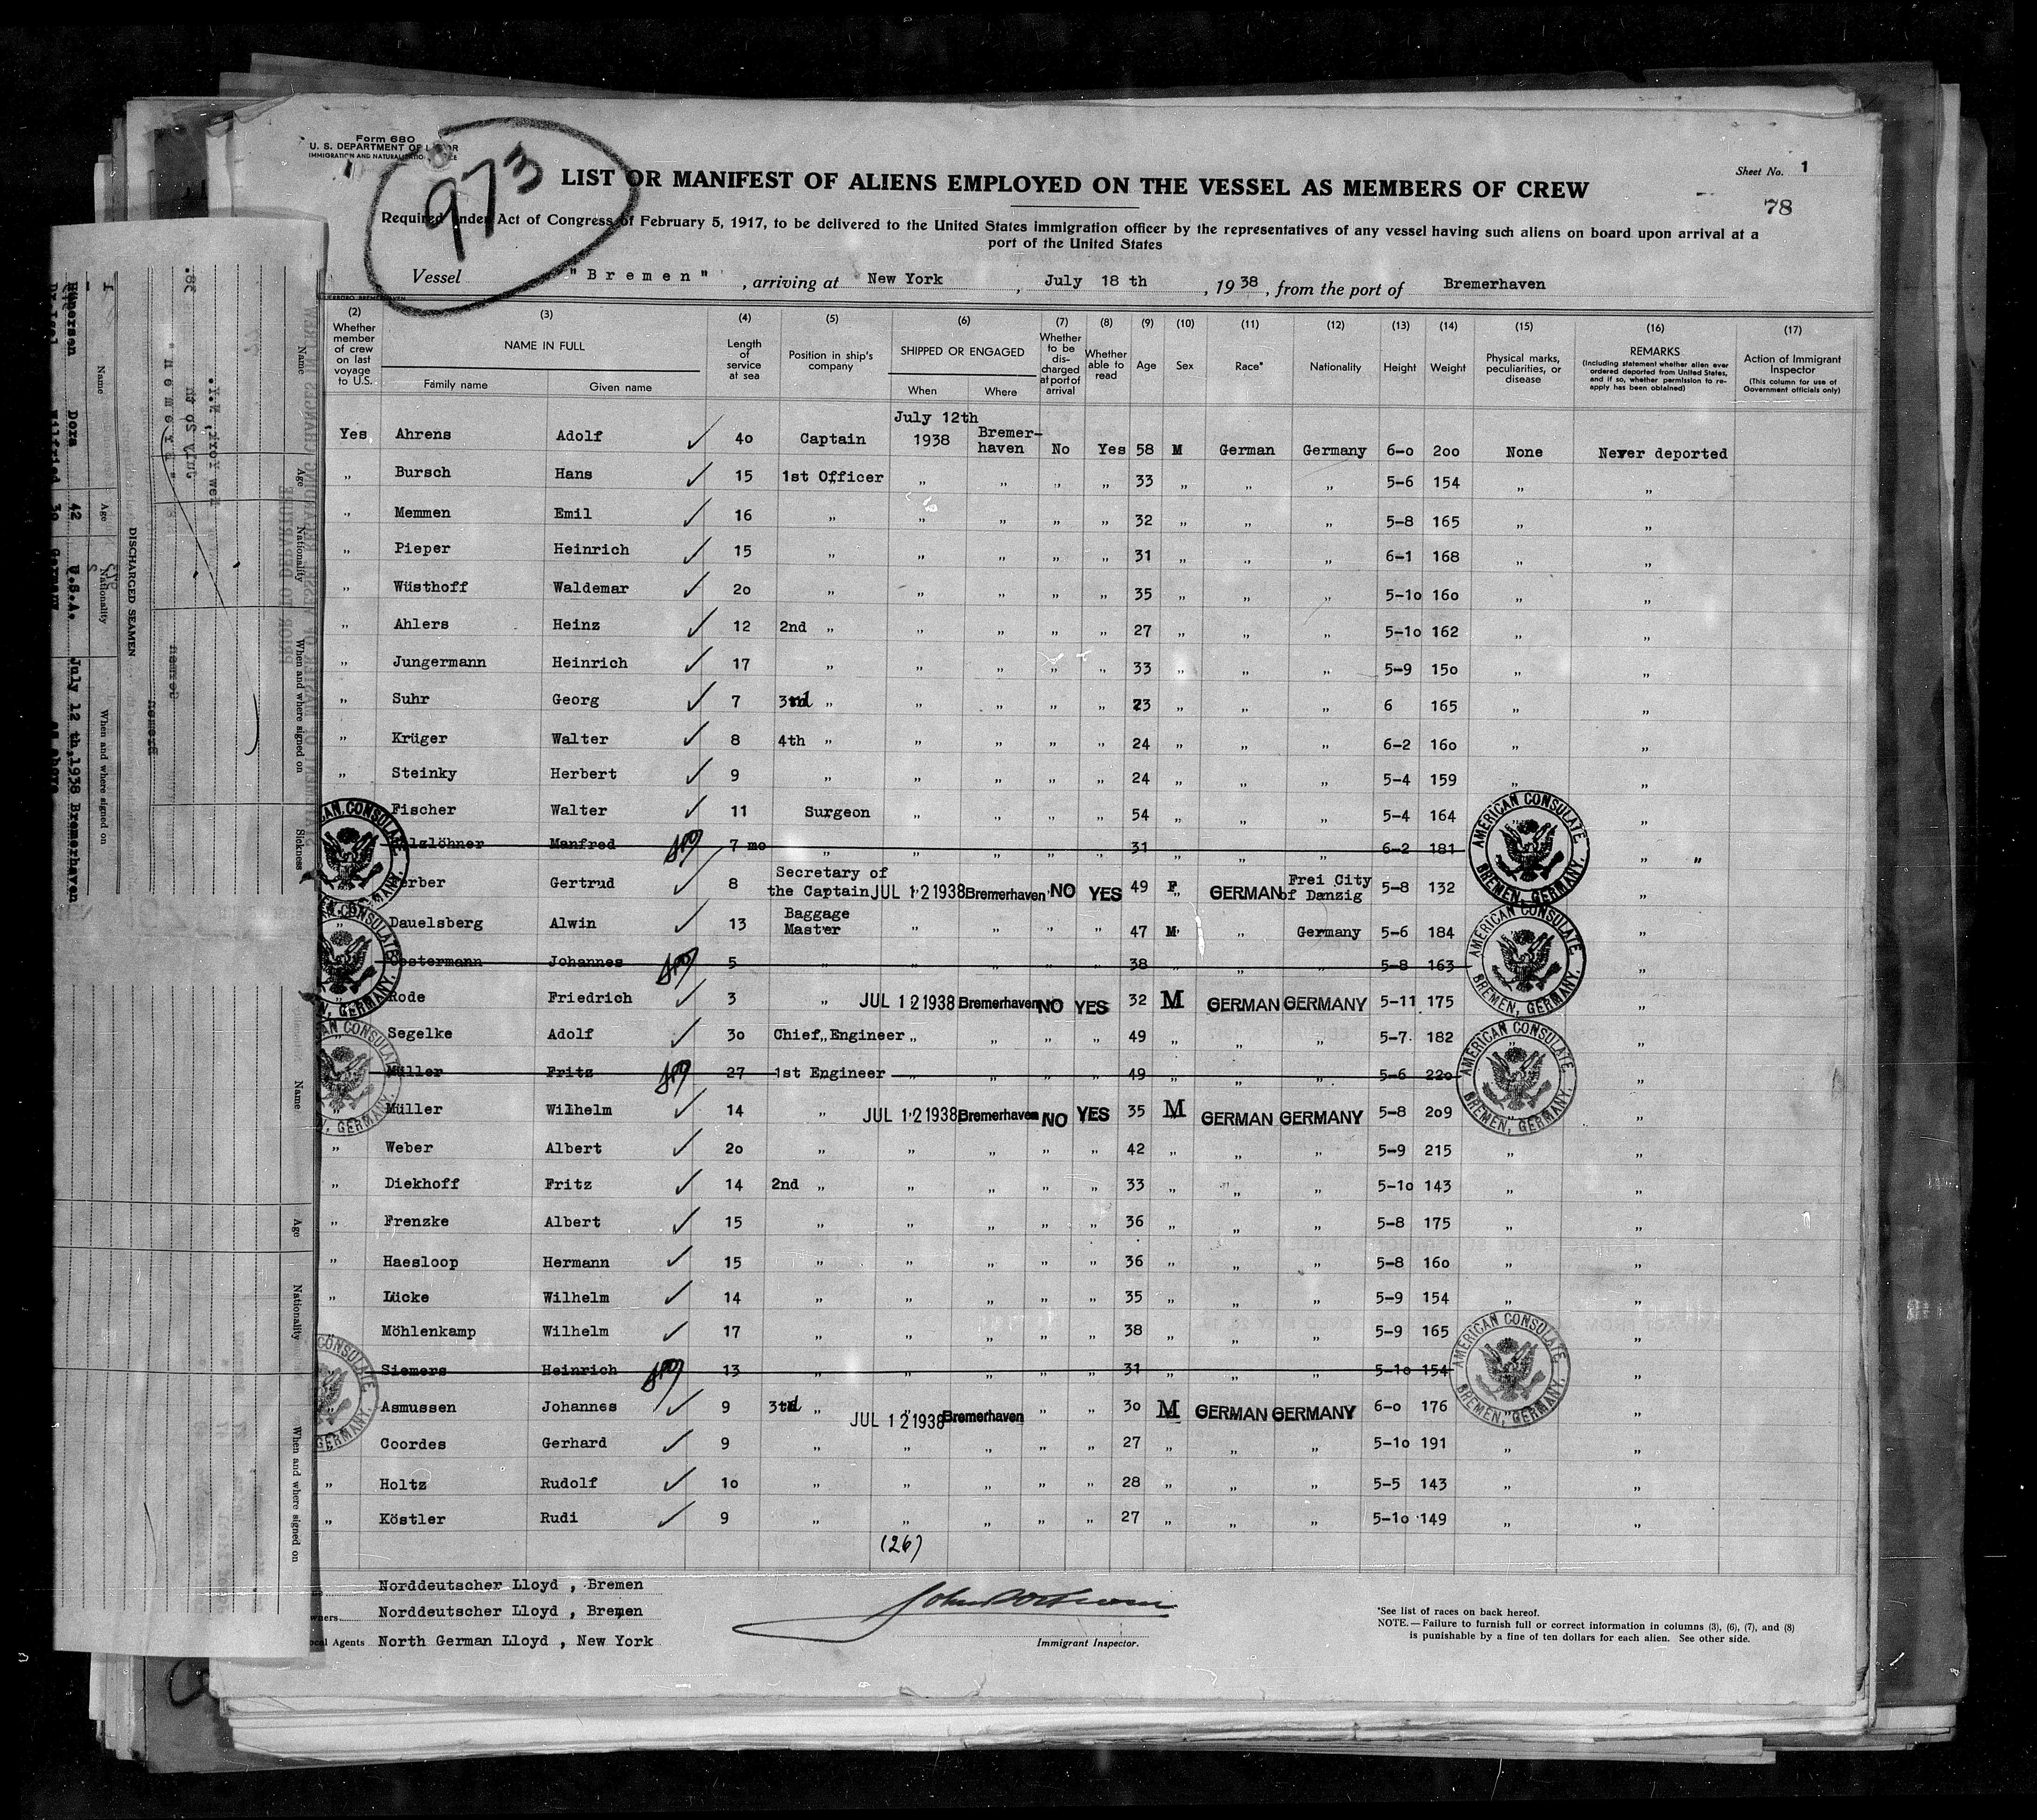 Form 680
U. S. DEPARTMENT OF LABOR
IMMIGRATION AND NATURALIZATION SERVICE
973
Sheet No. 1
LIST OR MANIFEST OF ALIENS EMPLOYED ON THE VESSEL AS MEMBERS OF CREW
78
Required under Act of Congress of February 5, 1917, to be delivered to the United States immigration officer by the representatives of any vessel having such aliens on board upon arrival at a
port of the United States
Vessel "Bremen", arriving at New York, July 18 th, 1938, from the port of Bremerhaven
(2) Whether member of crew on last voyage to U.S. (3) NAME IN FULL Family name Given name (4) Length of service at sea (5) Position in ship's company (6) SHIPPED OR ENGAGED When Where (7) Whether to be discharged at port of arrival (8) Whether able to read (9) Age (10) Sex (11) Race* (12) Nationality (13) Height (14) Weight (15) Physical marks, peculiarities, or disease (16) REMARKS (Including statement whether alien ever ordered deported from United States, and if so, whether permission to reapply has been obtained) (17) Action of Immigrant Inspector (This column for use of Government officials only)
Yes Ahrens Adolf 40 Captain July 12th 1938 Bremerhaven No Yes 58 M German Germany 6-0 200 None Never deported
" Bursch Hans 15 1st Officer " " " " 33 " " " 5-6 154 " "
" Memmen Emil 16 " " " " " 32 " " " 5-8 165 " "
" Pieper Heinrich 15 " " " " " 31 " " " 6-1 168 " "
" Wüsthoff Waldemar 20 " " " " " 35 " " " 5-10 160 " "
" Ahlers Heinz 12 2nd " " " " " 27 " " " 5-10 162 " "
" Jungermann Heinrich 17 " " " " " 33 " " " 5-9 150 " "
" Suhr Georg 7 3rd " " " " " 23 " " " 6 165 " "
" Krüger Walter 8 4th " " " " " 24 " " " 6-2 160 " "
" Steinky Herbert 9 " " " " " 24 " " " 5-4 159 " "
Fischer Walter 11 Surgeon " " " " 54 " " " 5-4 164 "
Manfred 7 mo " " " " " 31 " " " 6-2 181 " "
Gertrud 8 Secretary of the Captain JUL 12 1938 Bremerhaven NO YES 49 F GERMAN Frei City of Danzig 5-8 132 "
" Dauelsberg Alwin 13 Baggage Master " " " " 47 M " Germany 5-6 184 "
Johannes 5 " " " " " 38 " " " 5-8 163 "
" Rode Friedrich 3 " JUL 12 1938 Bremerhaven NO YES 32 M GERMAN GERMANY 5-11 175 "
Segelke Adolf 30 Chief Engineer " " " " 49 " " " 5-7 182 " "
Müller Fritz 27 1st Engineer " " " " 49 " " " 5-6 220 "
Müller Wilhelm 14 " JUL 12 1938 Bremerhaven NO YES 35 M GERMAN GERMANY 5-8 209 " "
" Weber Albert 20 " " " " " 42 " " " 5-9 215 " "
" Diekhoff Fritz 14 2nd " " " " " 33 " " " 5-10 143 " "
" Frenzke Albert 15 " " " " " 36 " " " 5-8 175 " "
" Haesloop Hermann 15 " " " " " 36 " " " 5-8 160 " "
" Lücke Wilhelm 14 " " " " " 35 " " " 5-9 154 " "
Möhlenkamp Wilhelm 17 " " " " " 38 " " " 5-9 165 "
Siemers Heinrich 13 " " " " " 31 " " " 5-10 154 "
" Asmussen Johannes 9 3rd " JUL 12 1938 Bremerhaven " " 30 M GERMAN GERMANY 6-0 176 " "
Coordes Gerhard 9 " " " " " 27 " " " 5-10 191 " "
" Holtz Rudolf 10 " " " " " 28 " " " 5-5 143 " "
" Köstler Rudi 9 " " " " " 27 " " " 5-10 149 " "
(26)
AMERICAN CONSULATE
BREMEN, GERMANY.
AMERICAN CONSULATE
BREMEN, GERMANY.
AMERICAN CONSULATE
BREMEN, GERMANY.
AMERICAN CONSULATE
BREMEN, GERMANY.
Norddeutscher Lloyd , Bremen
Norddeutscher Lloyd , Bremen
Local Agents North German Lloyd , New York
Immigrant Inspector.
*See list of races on back hereof.
NOTE.—Failure to furnish full or correct information in columns (3), (6), (7), and (8)
is punishable by a fine of ten dollars for each alien. See other side.
Name Age Nationality When and where signed on Sickness
Name Age Nationality When and where signed on
DISCHARGED SEAMEN
Dora 42 U.S.A. July 12 th,1938 Bremerhaven
Wilfried 30 Germany
New York, N.Y.
July 20 th
"Bremen"
German